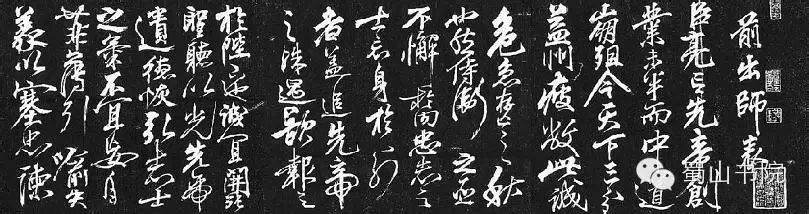 前出師表
臣亮言先帝創
業未半而中道
崩殂今天下三分
益州疲敝此誠
危急存亡之秋
也然侍衛之臣
不懈於內忠志之
士忘身於外
者蓋追先帝
之殊遇欲報之
於陛下誠宜開張
聖聽以光先帝
遺德恢弘志士
之氣不宜妄自
菲薄引喻失
義以塞忠諫
蜀山书院